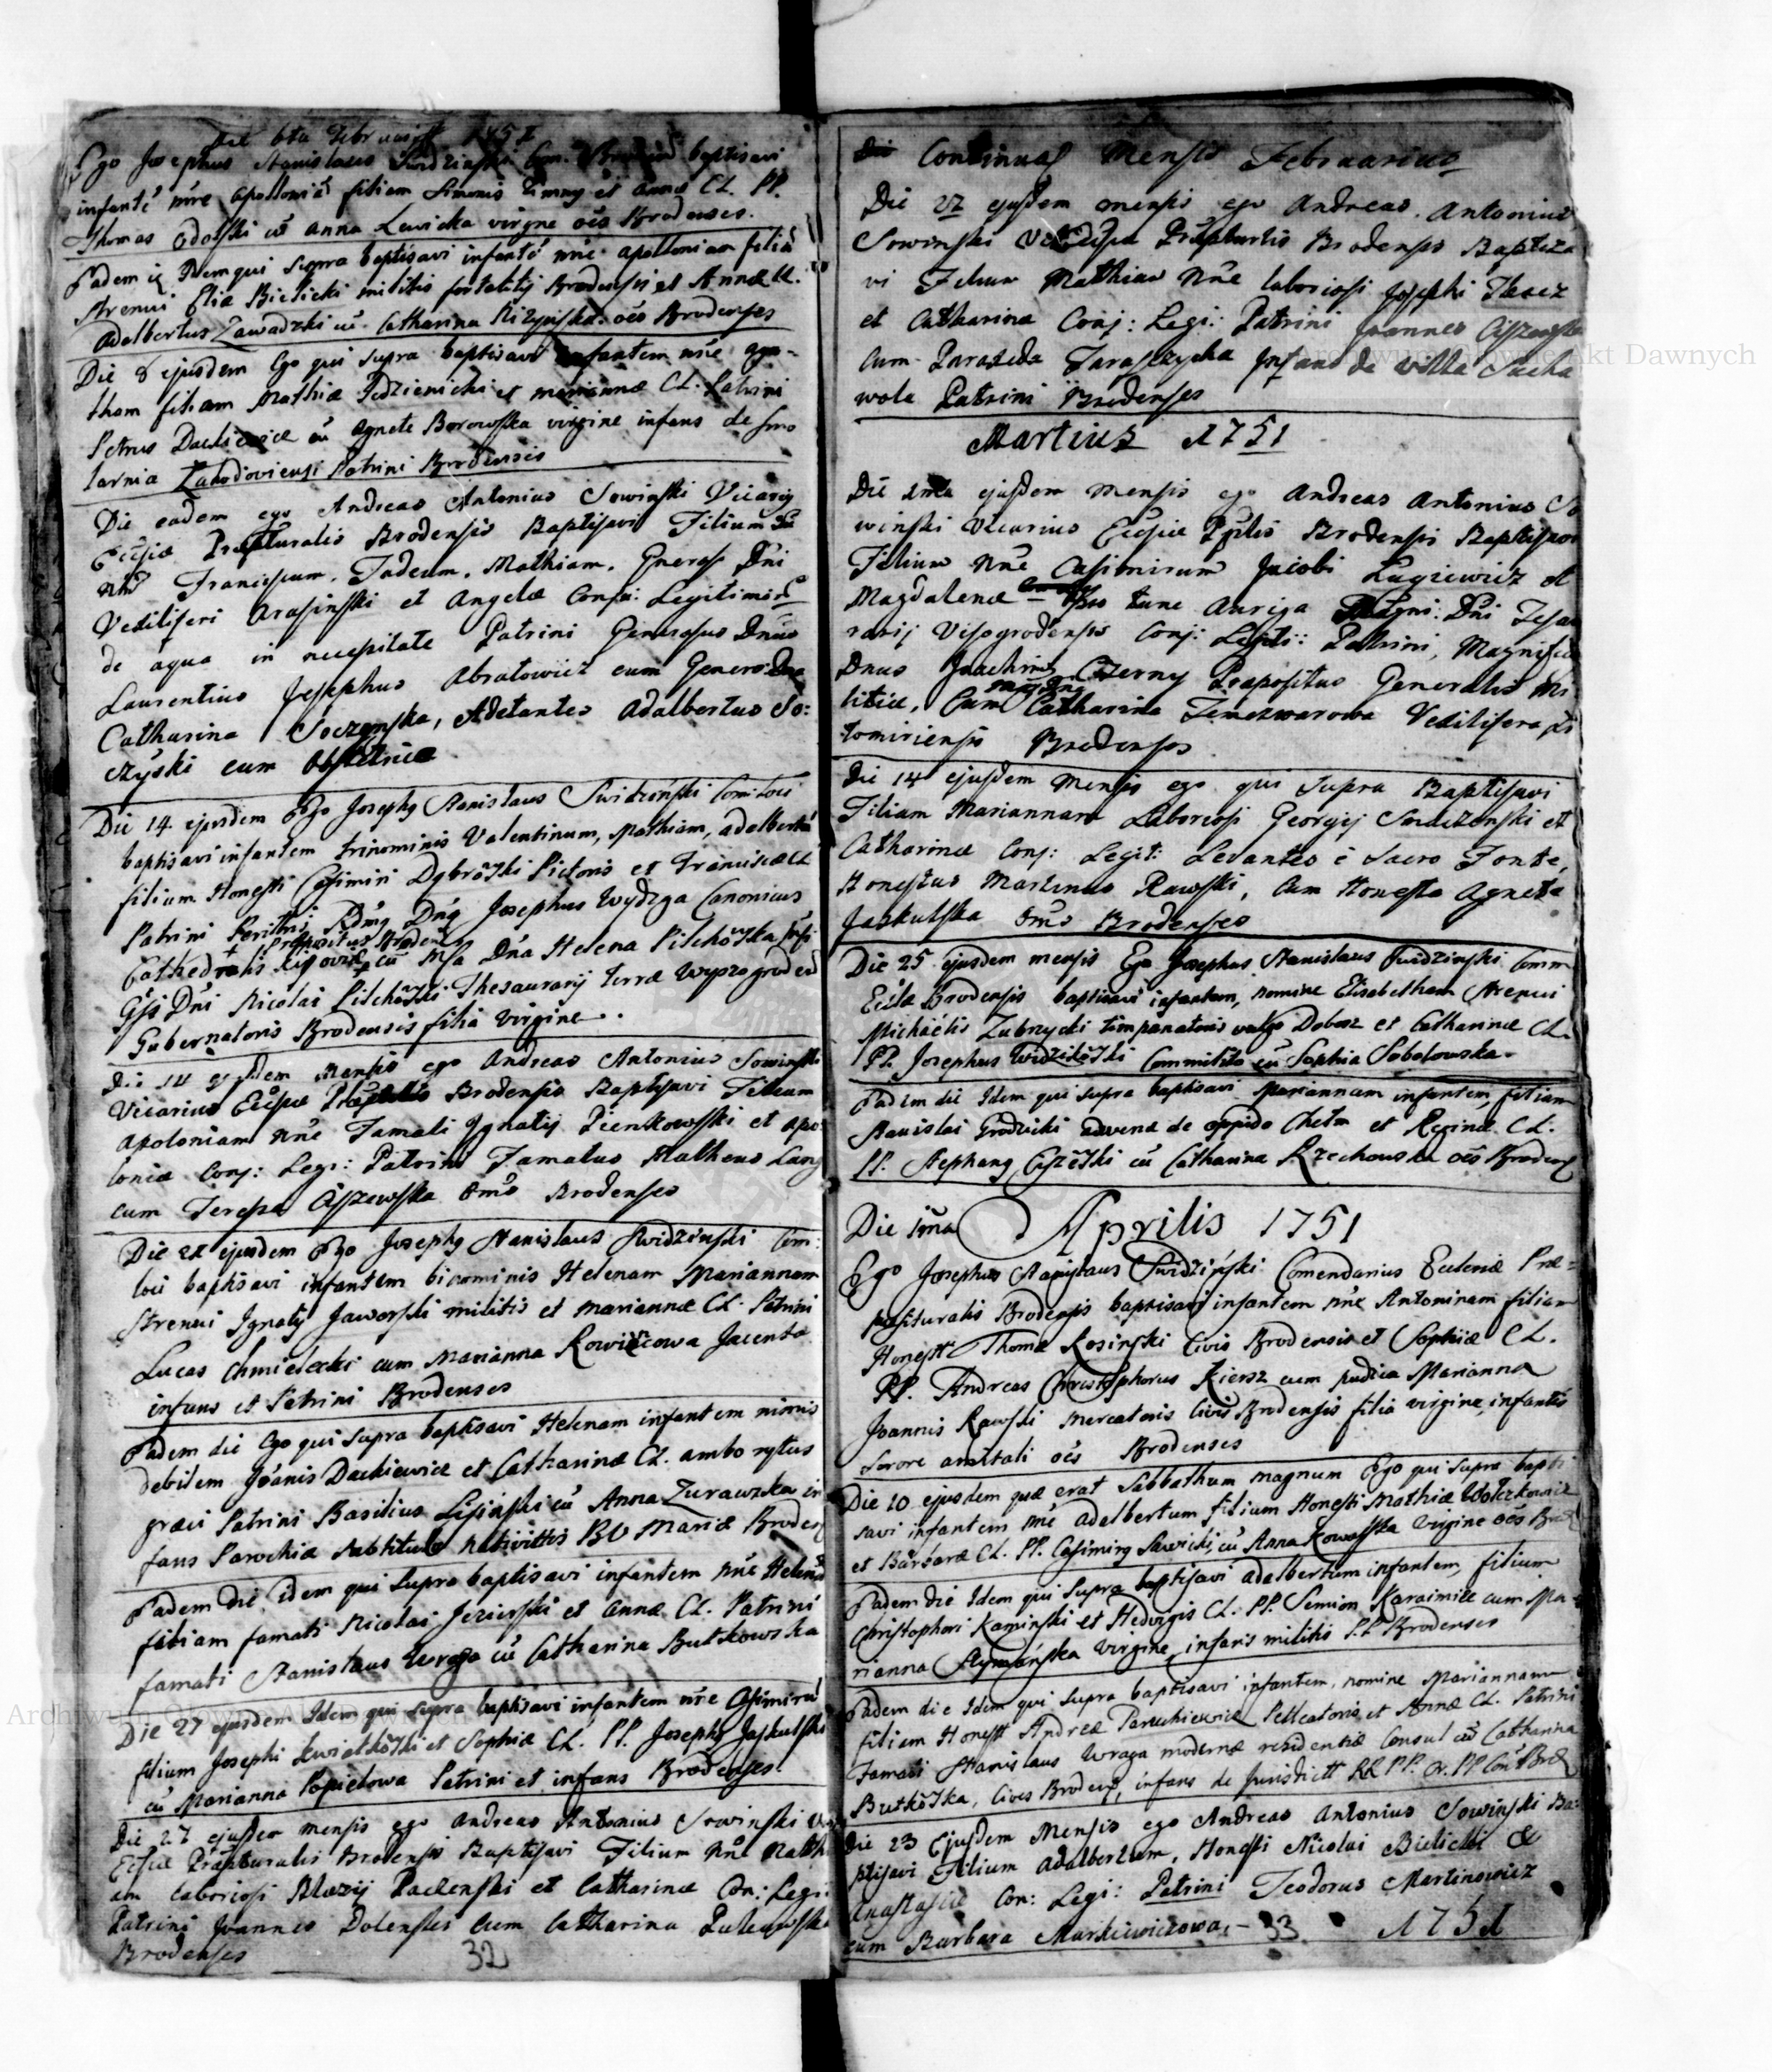 Die 6ta Februarii 1751
Ego Josephus Stanislaus Swidzinski Com: baptisavi
infantē nńe Apolloniā filiam Simonis et Annæ CL. PP.
Thomas cū Anna Lewicka virgne oēs Brodenses.
Eadem Idem qui supra baptisavi infantē nńe Apolloniam filiā
Strenui Eliæ Bielicki militis fortalitij Brodensis et Annæ CL.
Adalbertus Zawadzki cū Catharina oēs Brodenses
Die 8 ejusdem Ego qui supra baptisavi infantem nńe Aga-
tham filiam Mathiæ et Mariannæ CL. Patrini
Petrus cū Agnete Borowska virgine infans de smo
larnia Patrini Brodensis
Die eadem ego Andreas Antonius Sowinski Vicarig
Ecclsiæ Præpturalis Brodensis Baptisavi Filium
Franciscum. Tadeum. Mathiam. Generosi Dni
Vexiliferi Arasinski et Angelæ Conju: Legitimor
de aqua in necessitate Patrini Generosus Dnus
Laurentius Josephus Abratowicz cum Generosi Dna
Catharina Soczynska, Adstantes Adalbertus So:
czyski cum Obstetrice
Die 14 ejusdem Ego Josephg Stanislaus Swidzinski Com: loci
baptisavi infantem trinominis Valentinum, Mathiam, Adalbertū
filium Honesti Casimiri Dąbrōski Pictoris et Franciscæ CL
Patrini Perillris Rdmg Dńg Josephus Wydzga Canonicus
+ Præpositus Broden
Cathedralis Kijoviæ cū Dńa Helena Pilchōska
Gsi Dńi Nicolai Pilchōski Thesaurarij terræ Wyszogroden
Gubernatoris Brodensis filia virgine.
Die 14 ejusdem mensis ego Andreas Antonius Sowinski
Vicarius Ecclsiæ Brodensis Baptisavi Filiam
Apoloniam nńe Famati Ignatij Pienkowski et Apo
loniæ Conj: Legi: Patrini Famatus Matheus Lang
cum Teressa Ciszewska Omēs Brodenses
Die 22 ejusdem Ego Josephg Stanislaus Swidzinski Com:
loci baptisavi infantem binominis Helenam Mariannam
Strenui Ignatij Jaworski militis et Mariannæ CL. Patrini
Lucas Chmielecki cum Marianna Rowińcowa
infans et Patrini Brodenses
Eadem die Ego qui supra baptisavi Helenam infantem nimis
debilem Joānis Dackiewicz et Catharinæ CL. ambo rytus
græci Patrini Basilius Lisinski cū Anna Zurawska in
fans Parochiæ subtitulo nativittis BV Mariæ Broden
Eadem die idem qui supra baptisavi infantem nńe Helenā
filiam famati Nicolai Jezierski et Annæ CL. Patrini
famati Stanislaus Wraga cū Catharina Butkowska
Die 27 ejusdem Idem qui supra baptisavi infantem nńe Casimirū
filium Josephi Kwiatkōski et Sophiæ CL. PP. Josephg Jaskulski
cū Marianna Popielowa Patrini et infans Brodenses.
Die 27 ejusdem mensis ego Andreas Antonius Sowinski
Ecclsiæ Præpturalis Brodensis Baptisavi Filium Nńe Mathi
am Laboriosi Blazij et Catharinæ Con: Legi:
Patrini Joannes Dolenstes Cum Catharina
Brodenses
32
Continuas Mensis Februarius
Die 27 ejusdem mensis ego Andreas Antonius
Sowinski Præpturlis Brodensis Baptiza
vi Filium Mathiam Nńe laboriosi Josephi Tkacz
et Catharinæ Conj: Legi: Patrini Joannes Ciszewski
Cum Paraxeda Taraszczycha Infans de villa Sucha
wola Patrini Brodenses
Martius 1751
Die 2nda ejusdem mensis ego Andreas Antonius So
winski Vicarius Ecclsiæ Pptlis Brodensis Baptisavi
Filium Nńe Casimirum Jacobi Lugiewicz et
Magdalenæ tunc Auriga Magni: Dni Tesau
rarij Visogrodensis Conj: Legiti: Patrini, Magnificus
Dnus Joachim Czerny Præpositus Generalis Mi
litiæ, Cum Catharina Vexilifera
tomiriensis Brodenses
Die 14 ejusdem Mensis ego qui supra Baptisavi
Filiam Mariannam Laboriosi Georgij et
Catharinæ Conj: Legit: Levantes è Sacro Fonte,
Honestus Martinus Rawski, Cum Honesta Agneta
Jaskulska Omēs Brodenses
Die 25 ejusdem mensis Ego Josephus Stanislaus Swidzinski Comm
Eccłæ Brodensis baptisavi infantem, nomine Elisabetham Strenui
Michaelis Zubrzycki timpanatoris vulgo Dobosz et Catharinæ CL.
PP. Josephus Commilito cū Sophia Sobolowska.
Eadem die Idem qui supra baptisavi Mariannam infantem, filiam
Stanislai Grodzicki advenæ de oppido Chełm et Reginæ CL.
PP. Stephang Ciszēski cū Catharina Rzechowska oēs Brodens
Die 1ma Aprilis 1751
Ego Josephus Stanislaus Swidziński Comendarius Ecclesiæ Præ-
posituralis Brodensis baptisavi infantem nńe Antoninam filiam
Honesti Thomæ Rosinski Civis Brodensis et Sophiæ CL.
PP. Andreas Christophorus Kiersz cum pudica Marianna
Joannis Rawski Mercatoris Civis Brodensis filia virgine, infantis
sorore oēs Brodenses
Die 10 ejusdem quæ erat Sabbathum magnum Ego qui supra bapti
savi infantem nńe Adalbertum filium Honesti Mathiæ Wołczkowicz
et Barbaræ CL. PP. Casimirg Sawicki, cū Anna Kowalska Virgine oēs Brod
Eadem die Idem qui supra baptisavi Adalbertum infantem, filium
Christophori Kaminski et Hedvigis CL. PP. Semion Karaimicz cum Ma
rianna Szymańska Virgine, infans militis PP Brodenses
Eadem die Idem qui supra baptisavi infantem, nomine Mariannam
filiam Honesti Andreæ Paruchiewicz Pelleatoris, et Annæ CL. Patrini
Famati Stanislaus Wraga modernæ residentiæ Consul cū Catharina
Butkōska, Cives Brodens, infans de Jurisdictt RR PP. Or. PP Con Brod
Die 23 Ejusdem Mensis ego Andreas Antonius Sowinski Ba
ptisavi Filium Adalbertum, Honesti Nicolai Bielicki &
Anastasiæ Con: Legi: Patrini Teodorus Martinowicz
cum Barbara Markiewiczowa. - 33 1751